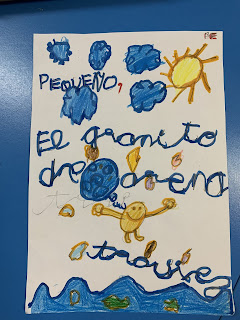 PEQUEÑO,
El granito
de arena
travies